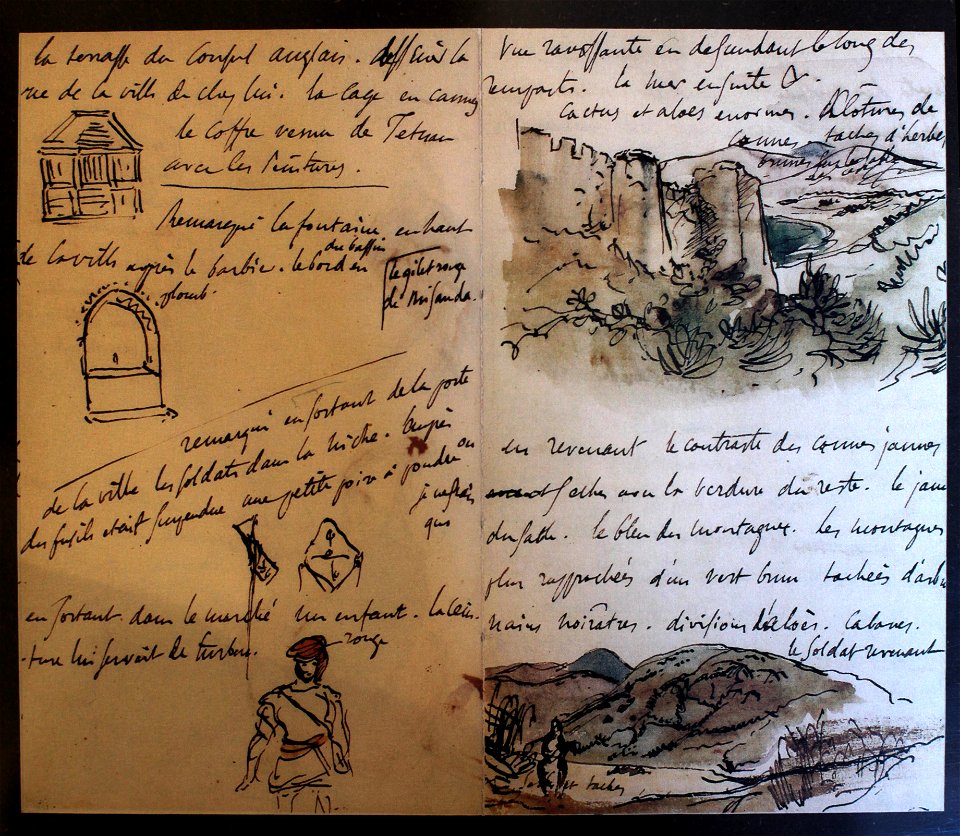 la terrasse du consul anglais. dessiné la
vue de la ville de chez lui. la cage en cannes
le coffre venu de Tetuan
avec les peintures.
Remarqué la fontaine, en haut
de la ville après le barbier. le bord
du bassin
en
plomb.
le gilet rouge
de
remarqué en sortant de la porte
de la ville les soldats dans la niche. Auprès
des fusils était suspendue une petite poire à poudre ou
je ne sais
quoi
en sortant dans le marché un enfant. la cein-
-ture lui servait de turban.
rouge
Vue ravissante en descendant le long des
remparts. la mer ensuite &.
cactus et aloès enormes. Clôtures de
cannes. taches d'herbes
brunes sur le sable
en revenant le contraste des cannes jaunes
seches avec la verdure du reste. le jaune
du sable. le bleu des montagnes. les montagnes
plus rapprochées d'un vert brun tachées d'arbres
nains noirâtres. divisions d'aloès. Cabanes.
le soldat revenant
et taches